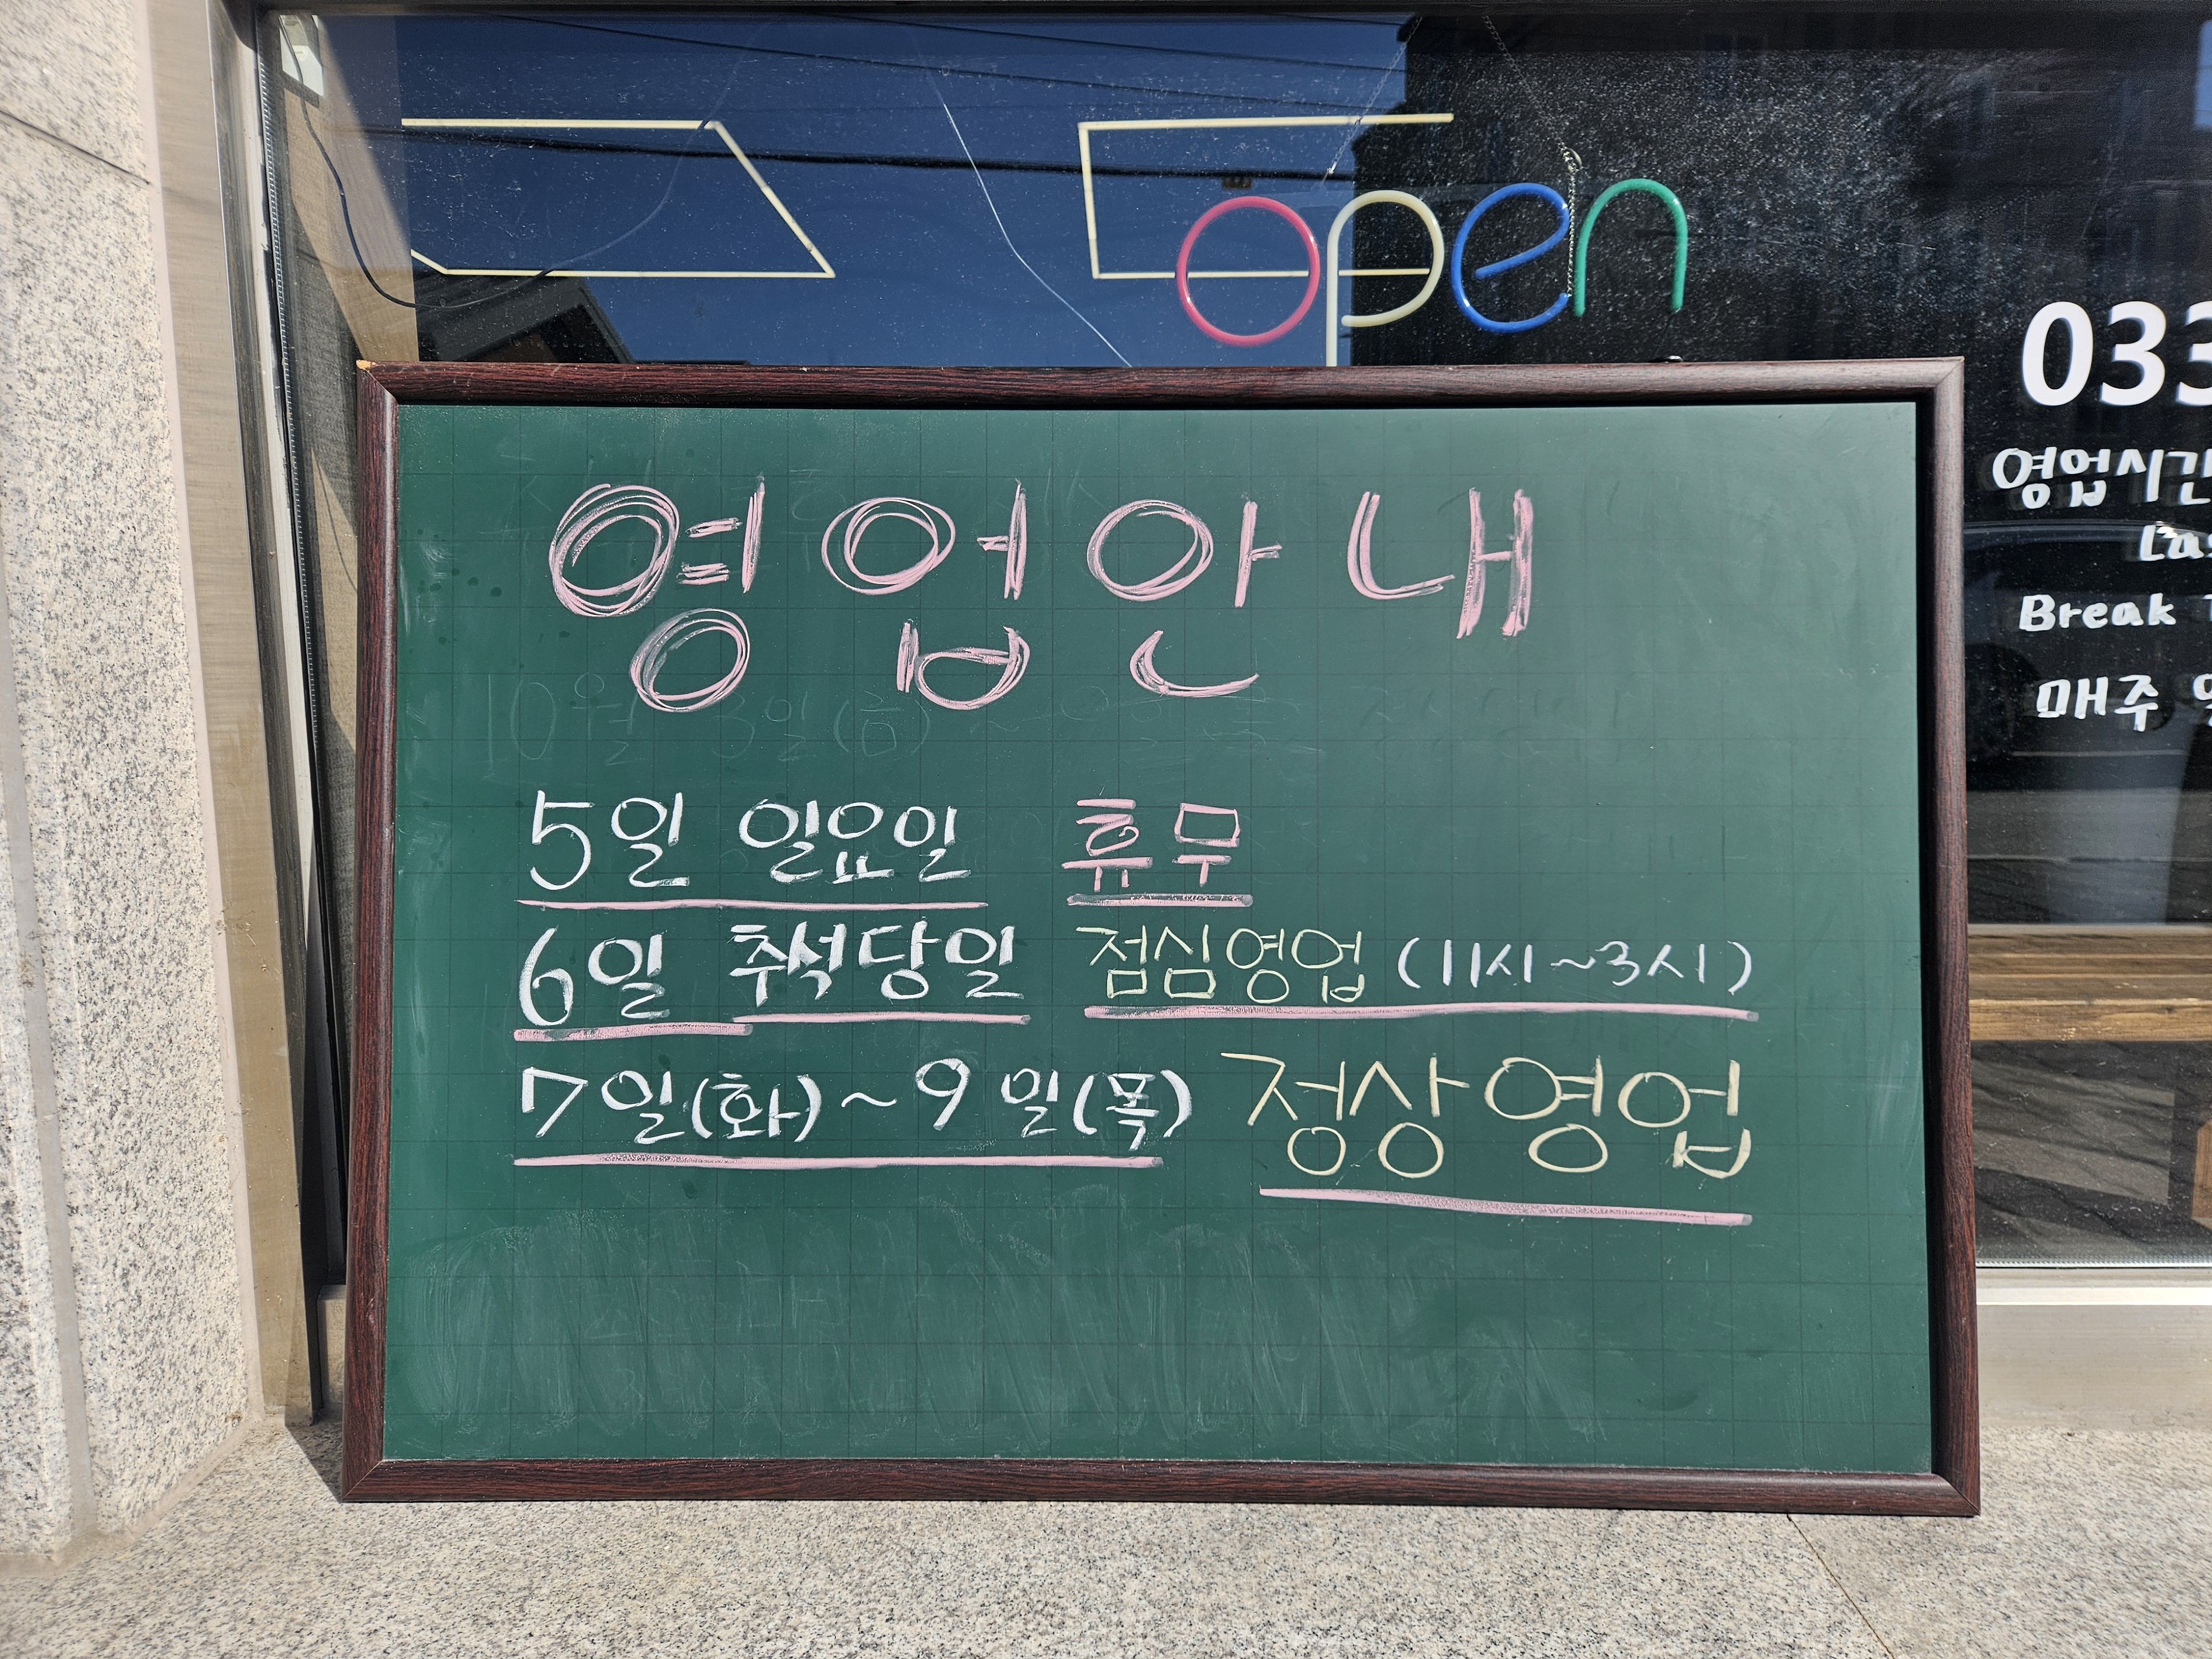 open
033
영업시간
Las
Break
매주
영업안내
5일 일요일 휴무
6일 추석당일 점심영업 (11시~3시)
7일(화)~9일(목) 정상영업